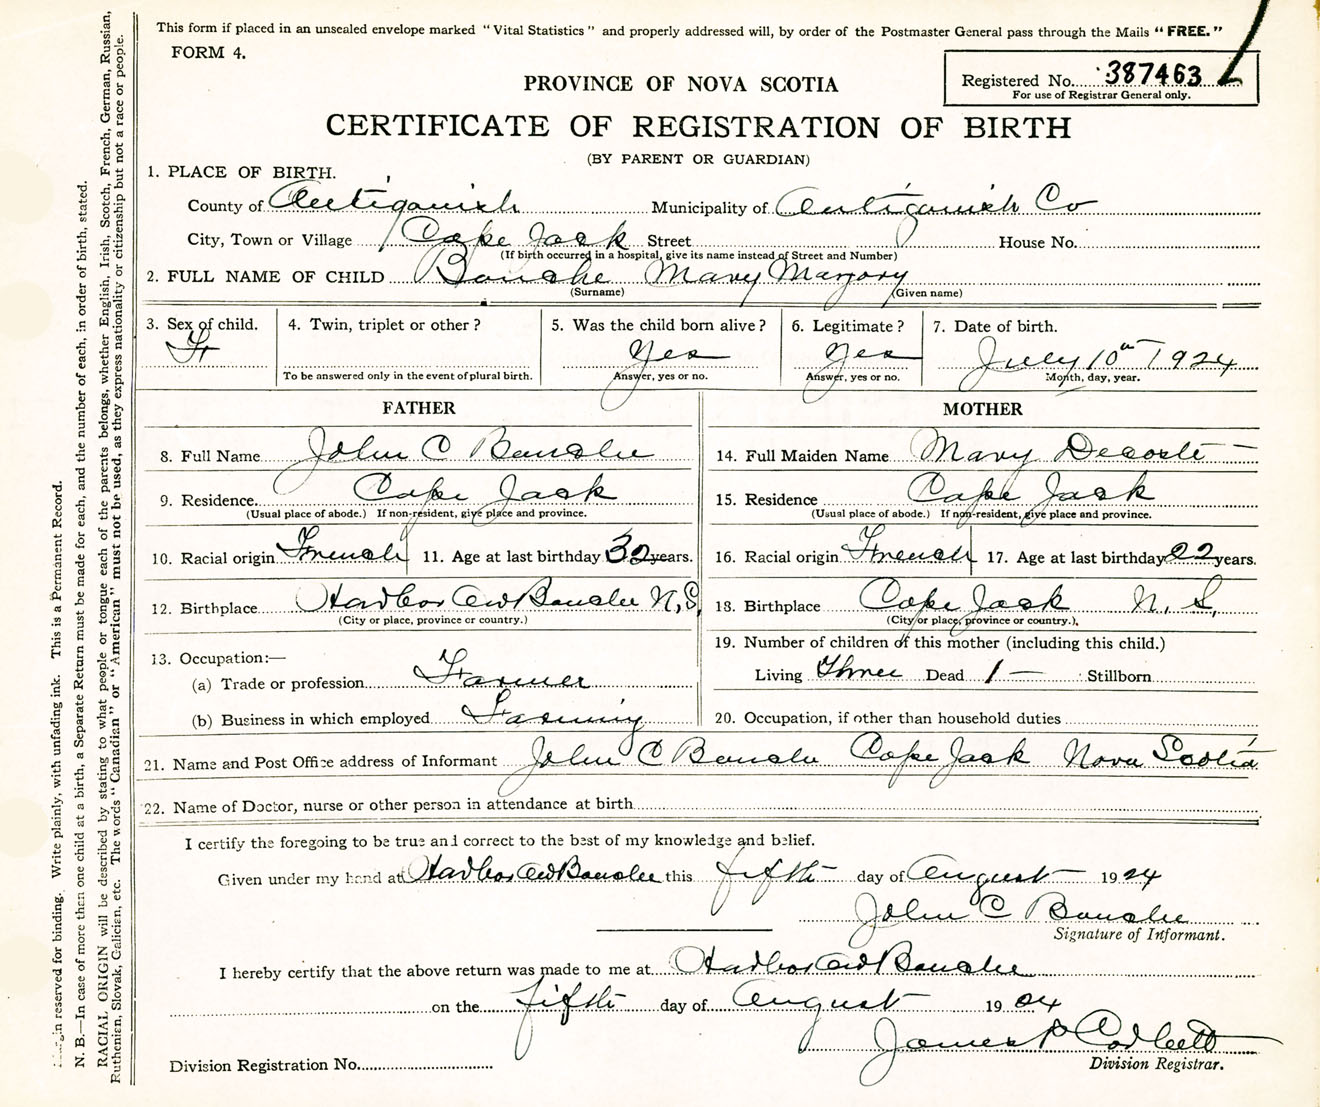 This form if placed in an unsealed envelope marked “Vital Statistics” and properly addressed will, by order of the Postmaster General pass through the Mails “FREE.”
FORM 4.
Registered No. 387463
For use of Registrar General only.
PROVINCE OF NOVA SCOTIA
CERTIFICATE OF REGISTRATION OF BIRTH
(BY PARENT OR GUARDIAN)
1. PLACE OF BIRTH.
County of Antigonish Municipality of Antigonish Co
City, Town or Village Cape Jack Street House No.
(If birth occurred in a hospital, give its name instead of Street and Number)
2. FULL NAME OF CHILD Bouche Mary Marjory
(Surname) (Given name)
3. Sex of child. F
4. Twin, triplet or other?
To be answered only in the event of plural birth.
5. Was the child born alive? Yes
Answer, yes or no.
6. Legitimate? Yes
Answer, yes or no.
7. Date of birth.
July 10th 1924
Month, day, year.
FATHER
8. Full Name John C Bouche
9. Residence. Cape Jack
(Usual place of abode.) If non-resident, give place and province.
10. Racial origin French 11. Age at last birthday 32 years.
12. Birthplace Harbor Au Bouche N.S.
(City or place, province or country.)
13. Occupation:—
(a) Trade or profession Farmer
(b) Business in which employed Farming
MOTHER
14. Full Maiden Name Mary Decoste
15. Residence Cape Jack
(Usual place of abode.) If non-resident, give place and province.
16. Racial origin French 17. Age at last birthday 22 years.
18. Birthplace Cape Jack N. S.
(City or place, province or country.),
19. Number of children of this mother (including this child.)
Living Three Dead 1 — Stillborn
20. Occupation, if other than household duties
21. Name and Post Office address of Informant John C Bouche Cape Jack Nova Scotia
22. Name of Doctor, nurse or other person in attendance at birth
I certify the foregoing to be true and correct to the best of my knowledge and belief.
Given under my hand at Harbor Au Bouche this fifth day of August 1924
John C Bouche
Signature of Informant.
I hereby certify that the above return was made to me at Harbor Au Bouche
on the fifth day of August 1924
James P Corbett
Division Registrar.
Division Registration No.
Margin reserved for binding. Write plainly, with unfading ink. This is a Permanent Record.
N. B.—In case of more than one child at a birth, a Separate Return must be made for each, and the number of each, in order of birth, stated.
RACIAL ORIGIN will be described by stating to what people or tongue each of the parents belongs, whether English, Irish, Scotch, French, German, Russian,
Ruthenian, Slovak, Galician, etc. The words “Canadian” or “American” must not be used, as they express nationality or citizenship but not a race or people.